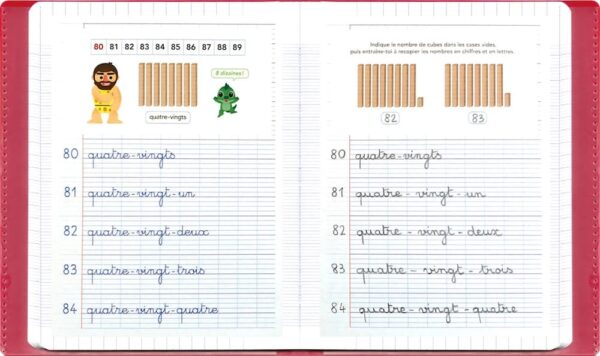 80 81 82 83 84 85 86 87 88 89
8 dizaines !
quatre-vingts
80 quatre-vingts
81 quatre-vingt-un
82 quatre-vingt-deux
83 quatre-vingt-trois
84 quatre-vingt-quatre
Indique le nombre de cubes dans les cases vides,
puis entraîne-toi à recopier les nombres en chiffres et en lettres.
82 83
80 quatre-vingts
81 quatre - vingt - un
82 quatre - vingt - deux
83 quatre - vingt - trois
84 quatre - vingt - quatre